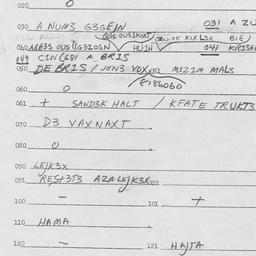 020 O
030 A NUM3 G3GEIN 031 A ZU
040 HUIN 041 KRISH
049 CIN (681 A BRIS
050 DE BRIS / JEN3 VOX 051 MIZIM MAL3
060 O
061 + SAND3K HALT / KFATE TRUKT3
070 D3 VAXNAXT
080 O
090 LEJK3X
091 REST3T3 AZALEJK3X
100 — 101 +
110 HAMA
120 — 121 HAJTA